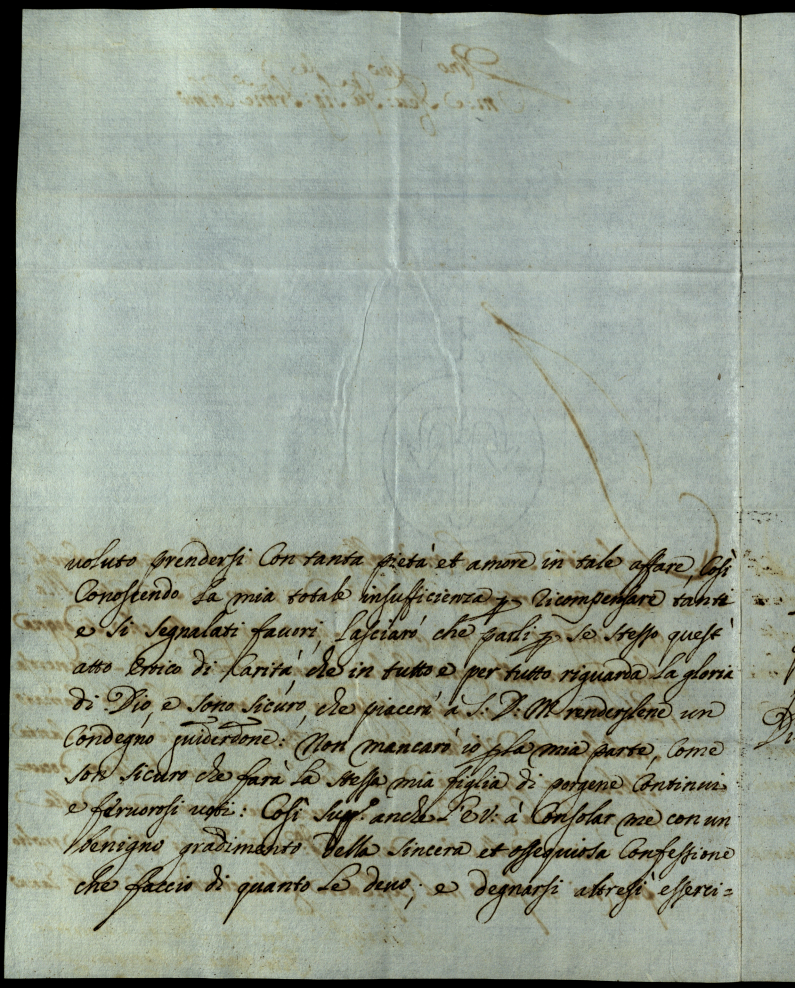 uoluto prendersi con tanta pietà et amore in tale affare, Così
Conoscendo la mia totale insufficienza p ricompensare tanti
e si segnalati fauori, lasciaró che parli p se stesso quest'
atto eroico di Carità che in tutto e per tutto riguarda la gloria
di Dio, e sono sicuro, che piacerà à S: D: M. renderglene un
Condegno guiderdone: Non mancaró io p la mia parte, Come
son sicuro che farà la stessa mia figlia di porgene Continui
e feruorosi uoti: Così supp.º anche l'E V: à Consolar me con un
benigno gradimento della sincera et ossequiosa Confessione
che faccio di quanto le deuo; e degnarsi altresì esserci=